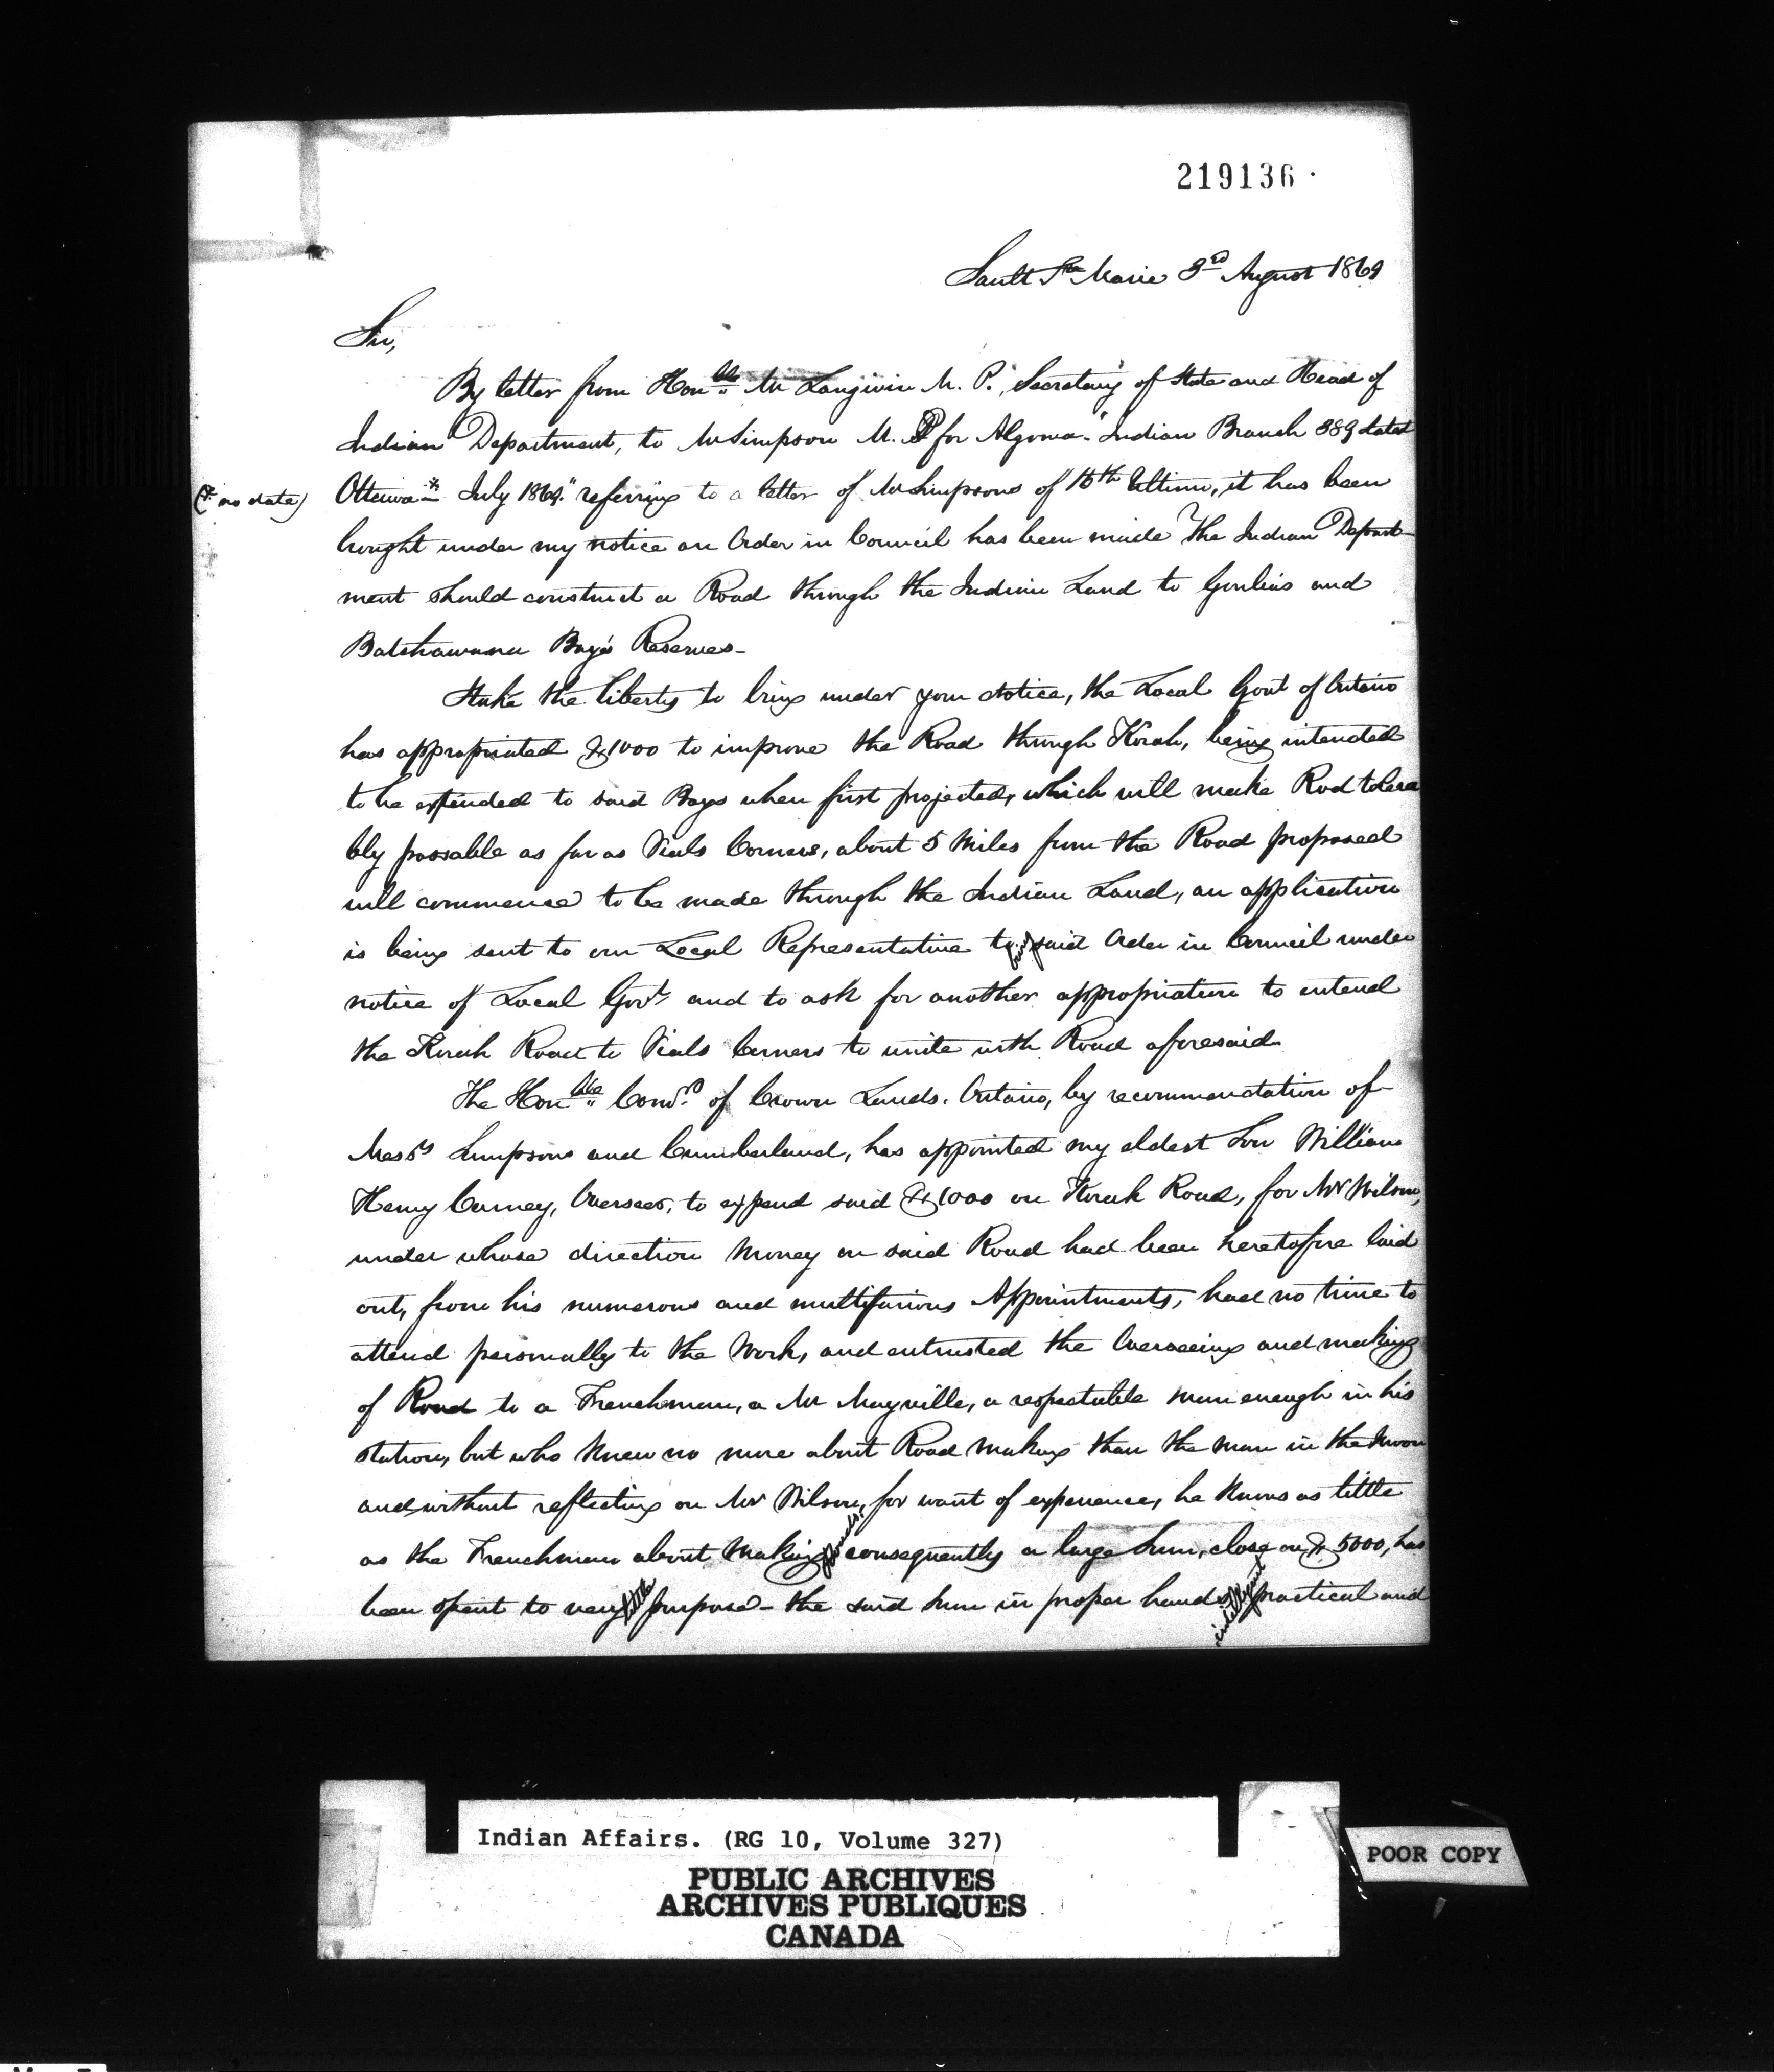 219136
Sault Ste Marie 3rd August 1869
Sir,
By letter from Honble Mr Langivin M. P. "Secretary of State and Head of
Indian Department, to Mr Simpson M. P for Algoma. "Indian Branch 389 dated
(* no date) Ottawa * July 1869." referring to a letter of Mr Simpsons of 15th Ultimo, it has been
brought under my notice an Order in Council has been made The Indian Depart-
ment should construct a Road through the Indian Land to Goulais and
Batchawana Bay's Reserves-
I take the liberty to bring under your Notice, the Local Govt of Ontario
has appropriated $1000 to improve the Road through Korah, being intended
to be extended to said Bays when first projected, which will make Rod tolera
bly passable as far as Vials Corners, about 5 Miles from the Road proposed
will commence to be made through the Indian Land, an application
is being sent to our Local Representative to bring said Order in Council under
notice of Local Govt and to ask for another appropriation to extend
the Korah Road to Vials Corners to unite with Road aforesaid.
The Honble Comr. of Crown Lands. Ontario, by recommendation of
Messrs Simpson and Cumberland, has appointed my eldest Son William
Henry Carney, Overseer, to expend said $1000 on Korah Road, for Mr Wilson,
under whose direction Money on said Road had been heretofore laid
out, from his numerous and multifarious Appointments, had no time to
attend personally to the Work, and entrusted the Overseeing and making
of Road to a Frenchman, a Mr Mayville, a respectable man enough in his
station, but who knew no more about Road making than the man in the Moon
and without reflecting on Mr Wilson, for want of experience, he knows as little
as the Frenchman about Making Roads, consequently a large Sum, close on $5000, has
been spent to very little purpose - the said Sum in proper hands, intelligent practical and
Indian Affairs. (RG 10, Volume 327)
PUBLIC ARCHIVES
ARCHIVES PUBLIQUES
CANADA
POOR COPY